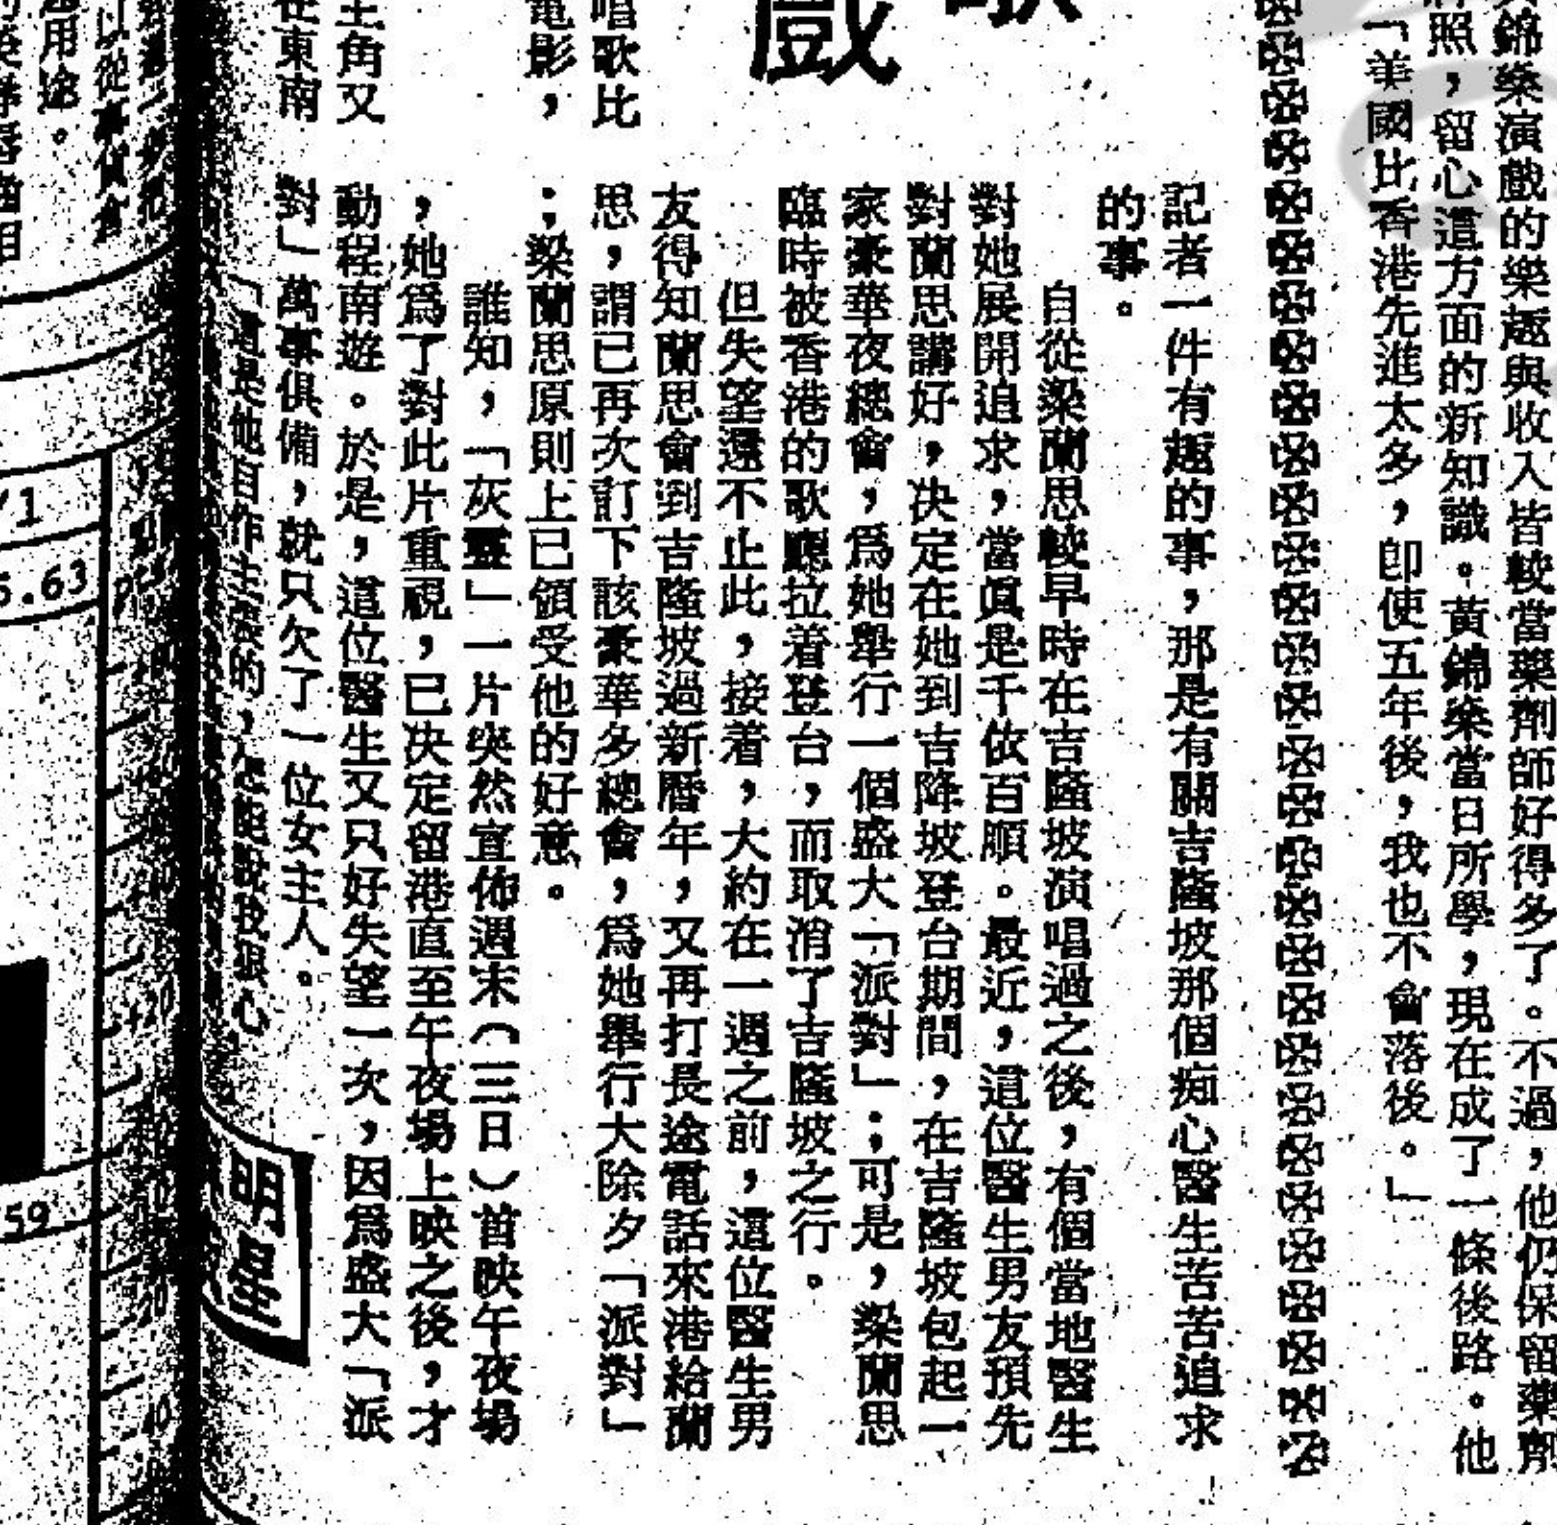 錦榮演戲的樂趣與收入皆較當藥劑師好得多了。不過，他仍保留藥劑
牌照，留心這方面的新知識。黃錦樂當日所學，現在成了一條後路。他
「美國比香港先進太多，卽使五年後，我也不會落後。」
歌
戲
記者一件有趣的事，那是有關吉隆坡那個痴心醫生苦苦追求
的事。
自從梁蘭思較早時在吉隆坡演唱過之後，有個當地醫生
對她展開追求，當眞是千依百順。最近，這位醫生男友預先
對蘭思講好，决定在她到吉降坡登台期間，在吉隆坡包起一
家豪華夜總會，爲她舉行一個盛大「派對」；可是，梁蘭思
臨時被香港的歌廳拉着登台，而取消了吉隆坡之行。
但失望還不止此，接着，大約在一週之前，這位醫生男
友得知蘭思會到吉隆坡過新曆年，又再打長途電話來港給蘭
思，謂已再次訂下該豪華多總會，爲她舉行大除夕「派對」
；梁蘭思原則上已領受他的好意。
誰知，「灰靈」一片突然宣佈週末（三日）首映午夜場
，她爲了對此片重視，已决定留港直至午夜場上映之後，才
動程南遊。於是，這位醫生又只好失望一次，因爲盛大「派
對」萬事俱備，就只欠了一位女主人。
唱歌比
電影，
主角又
在東南
「這是他自作主張的，怎能說我狠心
明星
用途。
以從事
1
5.63
59